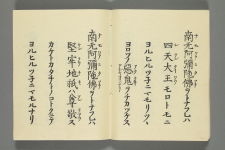 南无阿彌陀佛ヲトナフレハ
四天大王モロトモニ
ヨルヒルツ子ニマモリツヽ
ヨロツノ惡鬼ヲチカツケス
南无阿彌陀佛ヲトナフレハ
堅牢地祇ハ尊敬ス
カケトカタチトノコトクニテ
ヨルヒルツ子ニマモルナリ